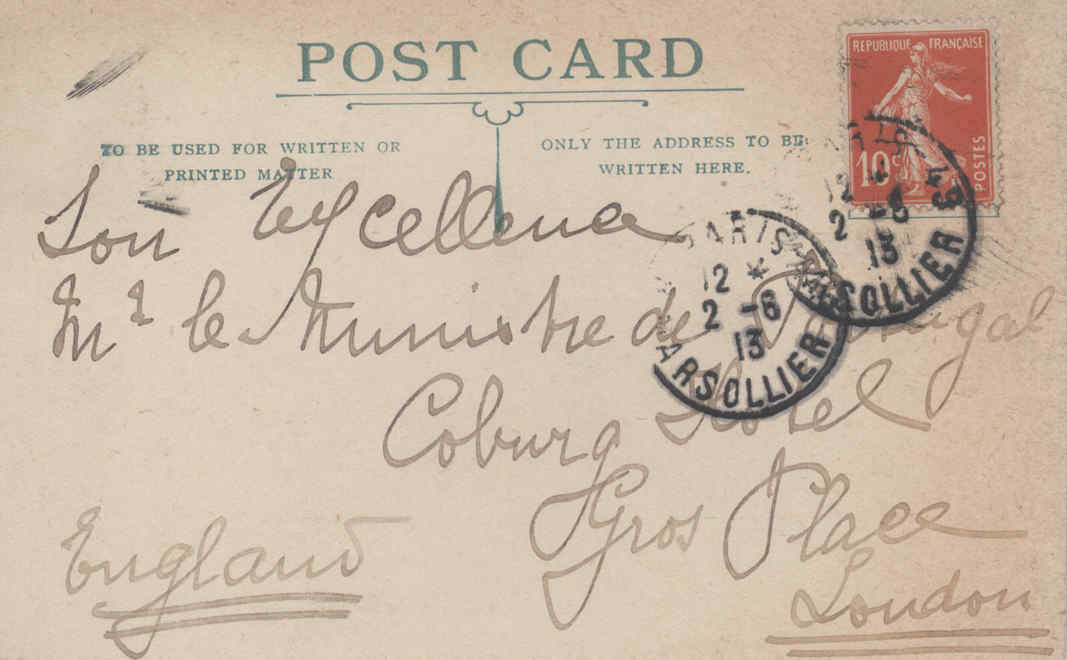 POST CARD
TO BE USED FOR WRITTEN OR
PRINTED MATTER
ONLY THE ADDRESS TO BE
WRITTEN HERE.
REPUBLIQUE FRANÇAISE
10c
POSTES
12 *
2 -6
13
ARSOLLIER
PARIS
12 *
2 -6
13
ARSOLLIER
Son Excellence
Mr le Ministre de Portugal
Coburg Hotel
Gros Place
London
England